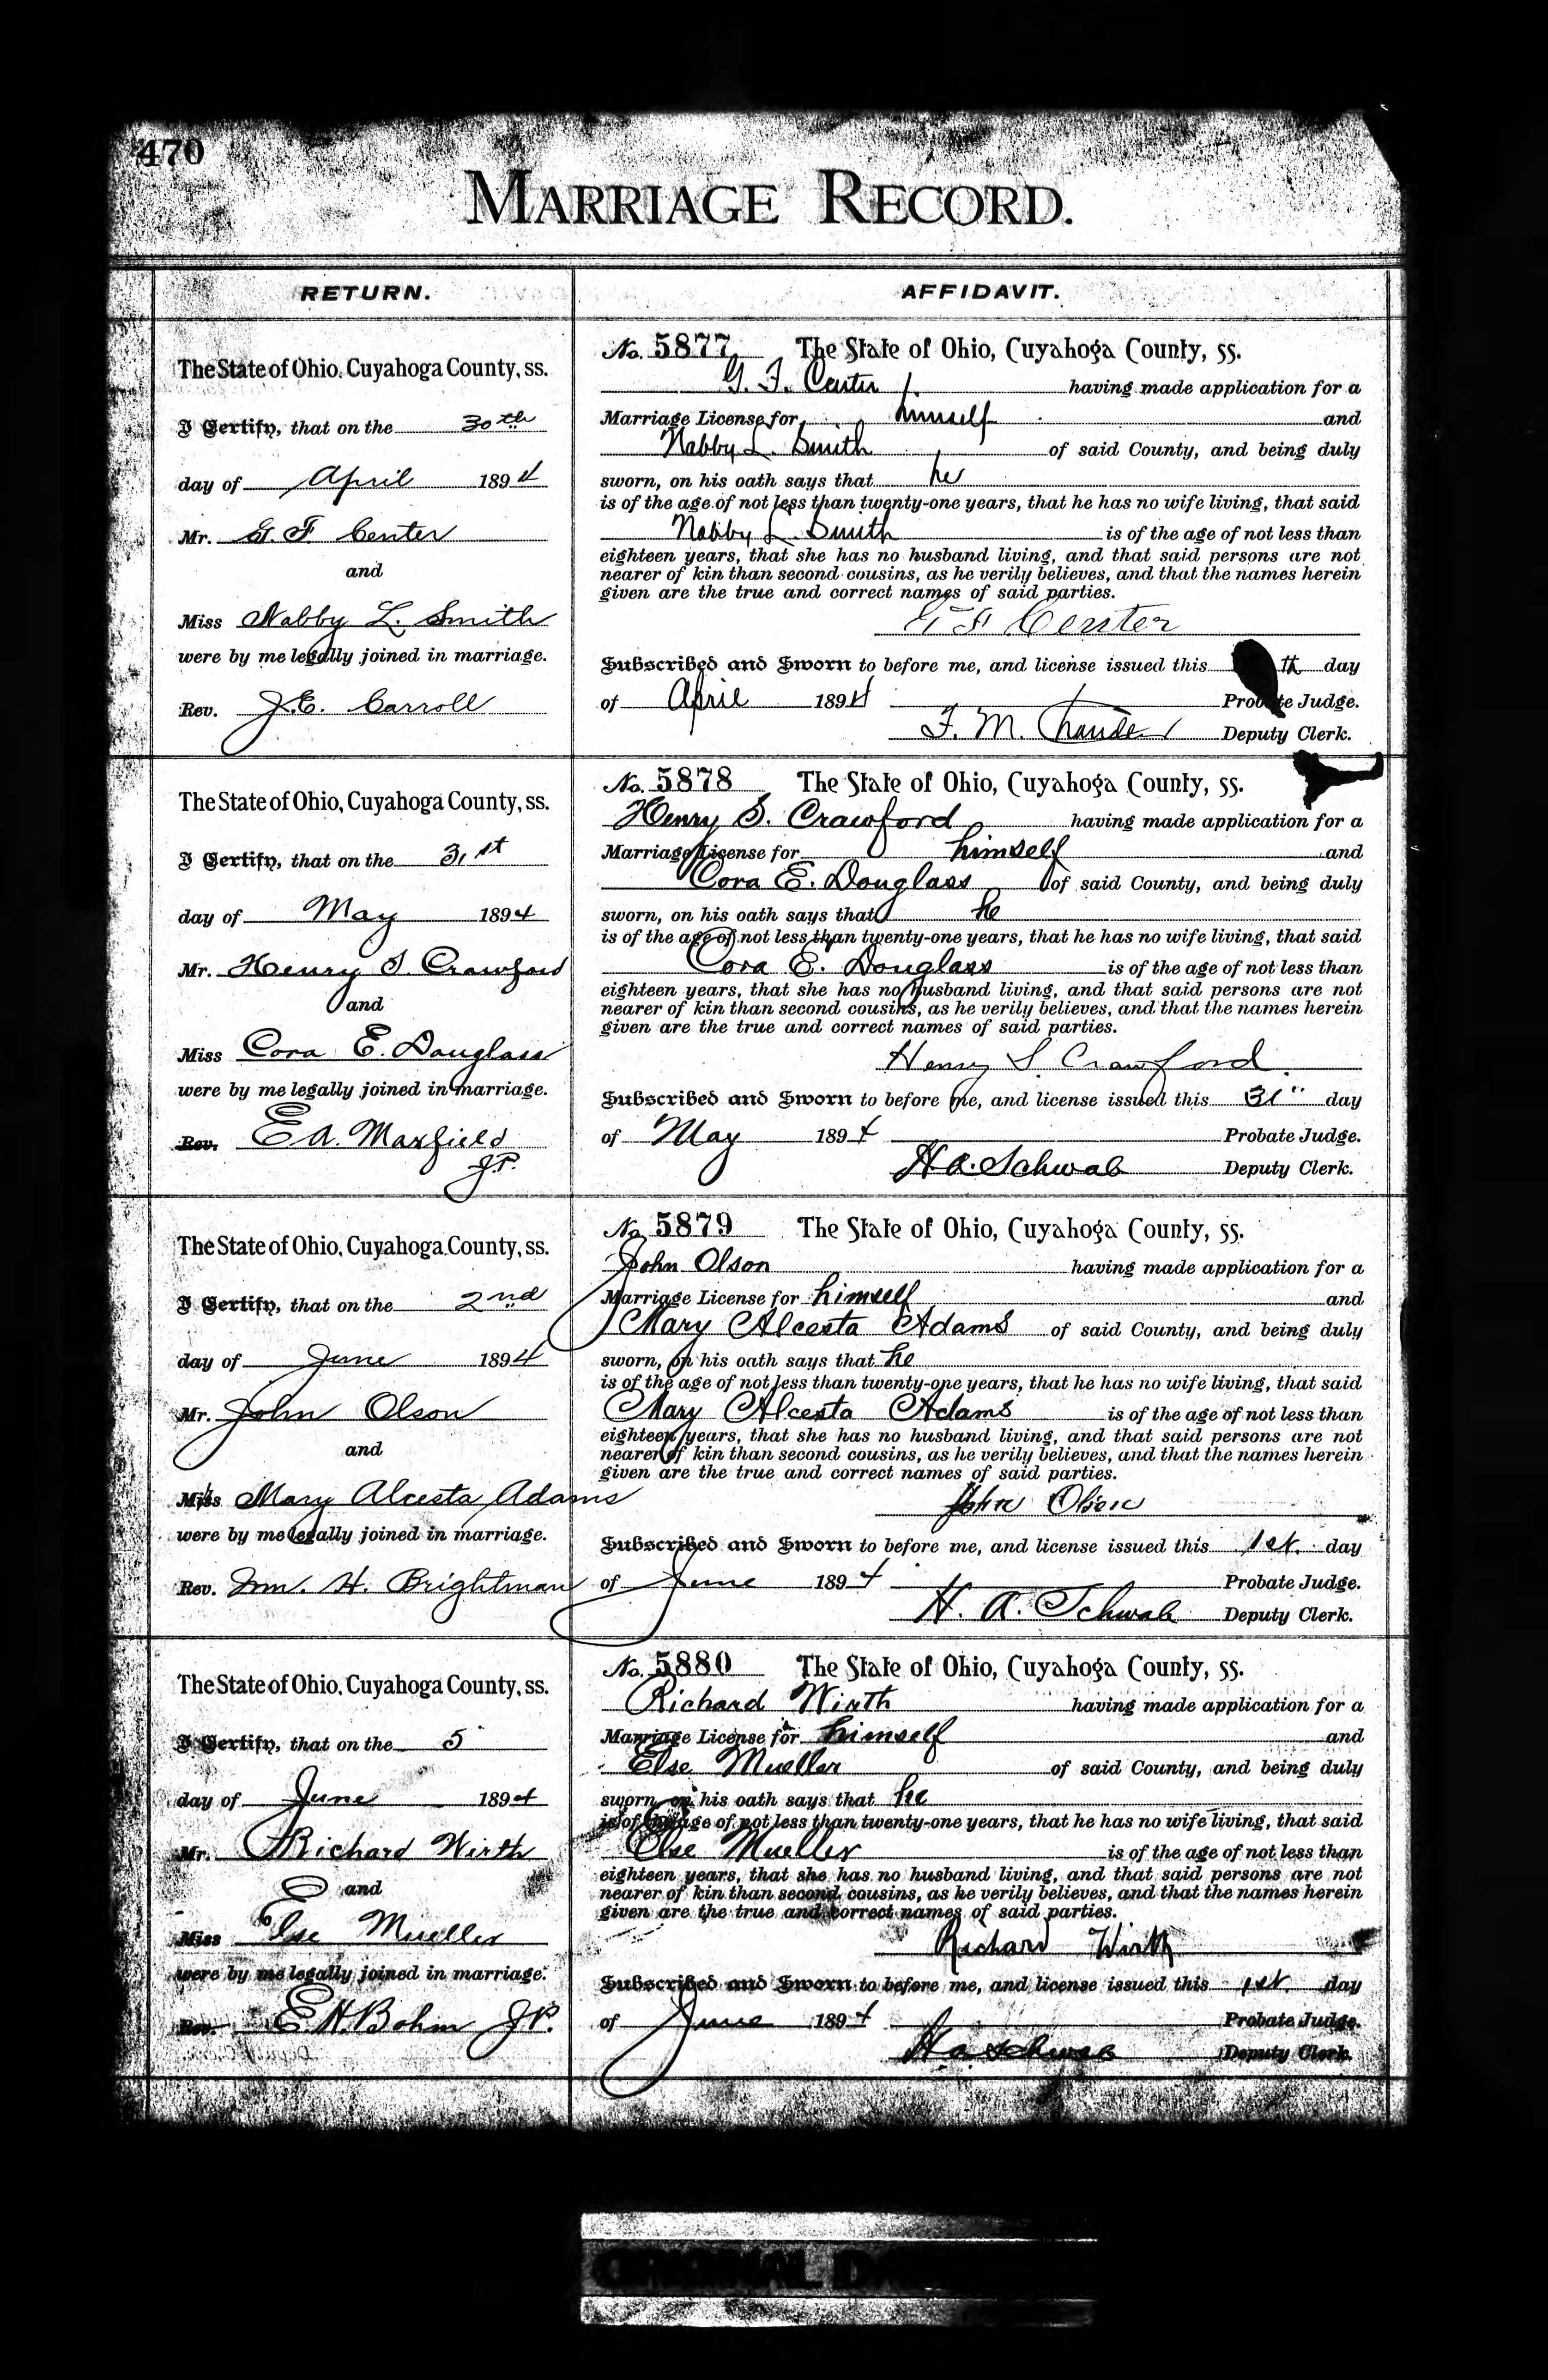 470
MARRIAGE RECORD.
RETURN.
AFFIDAVIT.
The State of Ohio, Cuyahoga County, ss.
I Certify, that on the 30th
day of April 1894
Mr. G. F. Center
and
Miss Nabby L. Smith
were by me legally joined in marriage.
Rev. J. E. Carroll
No. 5877 The State of Ohio, Cuyahoga County, ss.
G. F. Center having made application for a
Marriage License for himself and
Nabby L. Smith of said County, and being duly
sworn, on his oath says that he
is of the age of not less than twenty-one years, that he has no wife living, that said
Nabby L. Smith is of the age of not less than
eighteen years, that she has no husband living, and that said persons are not
nearer of kin than second cousins, as he verily believes, and that the names herein
given are the true and correct names of said parties.
G F Center
Subscribed and Sworn to before me, and license issued this th day
of April 1894 Probate Judge.
F. M. Deputy Clerk.
The State of Ohio, Cuyahoga County, ss.
I Certify, that on the 31st
day of May 1894
Mr. Henry S. Crawford
and
Miss Cora E. Douglass
were by me legally joined in marriage.
Rev. E A. Maxfield
J.P.
No. 5878 The State of Ohio, Cuyahoga County, ss.
Henry S. Crawford having made application for a
Marriage License for himself and
Cora E. Douglass of said County, and being duly
sworn, on his oath says that he
is of the age of not less than twenty-one years, that he has no wife living, that said
Cora E. Douglass is of the age of not less than
eighteen years, that she has no husband living, and that said persons are not
nearer of kin than second cousins, as he verily believes, and that the names herein
given are the true and correct names of said parties.
Henry S. Crawford.
Subscribed and Sworn to before me, and license issued this 31" day
of May 1894 Probate Judge.
H. A. Schwab Deputy Clerk.
The State of Ohio, Cuyahoga County, ss.
I Certify, that on the 2nd
day of June 1894
Mr. John Olson
and
Miss Mary Alcesta Adams
were by me legally joined in marriage.
Rev. Wm. H. Brightman
No. 5879 The State of Ohio, Cuyahoga County, ss.
John Olson having made application for a
Marriage License for himself and
Mary Alcesta Adams of said County, and being duly
sworn, on his oath says that he
is of the age of not less than twenty-one years, that he has no wife living, that said
Mary Alcesta Adams is of the age of not less than
eighteen years, that she has no husband living, and that said persons are not
nearer of kin than second cousins, as he verily believes, and that the names herein
given are the true and correct names of said parties.
John Olson
Subscribed and Sworn to before me, and license issued this 1st. day
of June 1894 Probate Judge.
H. A. Schwab Deputy Clerk.
The State of Ohio, Cuyahoga County, ss.
I Certify, that on the 5
day of June 1894
Mr. Richard Wirth
and
Miss Else Mueller
were by me legally joined in marriage.
Rev. E. H. Bohm J.P.
No. 5880 The State of Ohio, Cuyahoga County, ss.
Richard Wirth having made application for a
Marriage License for himself and
Else Mueller of said County, and being duly
sworn, on his oath says that he
is of the age of not less than twenty-one years, that he has no wife living, that said
Else Mueller is of the age of not less than
eighteen years, that she has no husband living, and that said persons are not
nearer of kin than second cousins, as he verily believes, and that the names herein
given are the true and correct names of said parties.
Richard Wirth
Subscribed and Sworn to before me, and license issued this 1st. day
of June 1894 Probate Judge.
H. A. Schwab Deputy Clerk.